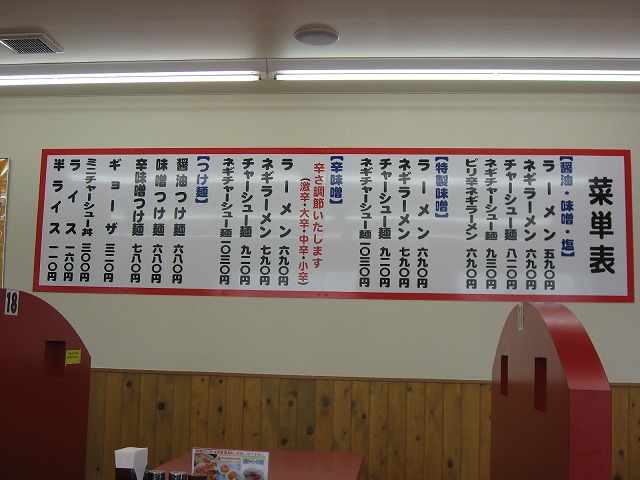 菜単表
【醤油・味噌・塩】
ラーメン 五九〇円
ネギラーメン 六九〇円
チャーシュー麺 八二〇円
ネギチャーシュー麺 九三〇円
ピリ辛ネギラーメン 六九〇円
【特製味噌】
ラーメン 六九〇円
ネギラーメン 七九〇円
チャーシュー麺 九二〇円
ネギチャーシュー麺 一〇三〇円
【辛味噌】
辛さ調節いたします
（激辛・大辛・中辛・小辛）
ラーメン 六九〇円
ネギラーメン 七九〇円
チャーシュー麺 九二〇円
ネギチャーシュー麺 一〇三〇円
【つけ麺】
醤油つけ麺 六八〇円
味噌つけ麺 六八〇円
辛味噌つけ麺 七八〇円
ギョーザ 三二〇円
ミニチャーシュー丼 三〇〇円
ライス 一六〇円
半ライス 一一〇円
18